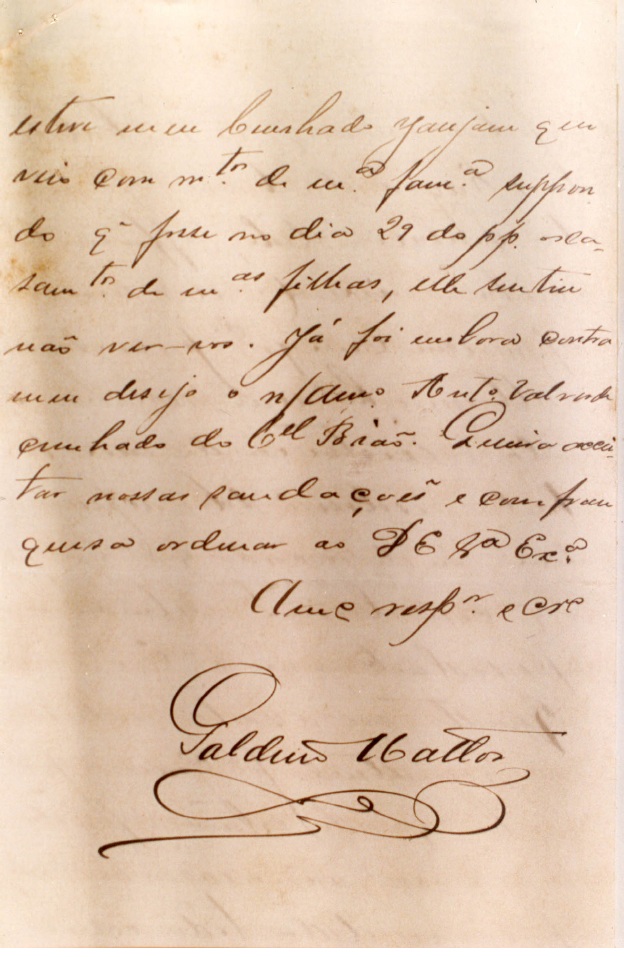 estive meu Cunhado Yauyam que
veio com m.tos de m.a fam.a suppon
do q' fosse no dia 29 do pp. o ca-
sam.to de m.as filhas, elle sentiu
não ver-nos. Já foi embora contra
meu desejo o n/amo. Anto. Valverde
cunhado do Cel Bião. Queira accei-
tar nossas saudações e com fran
quesa ordenar ao D E Va Ex.a
Amo respr. e Cre
Galdino Mattos